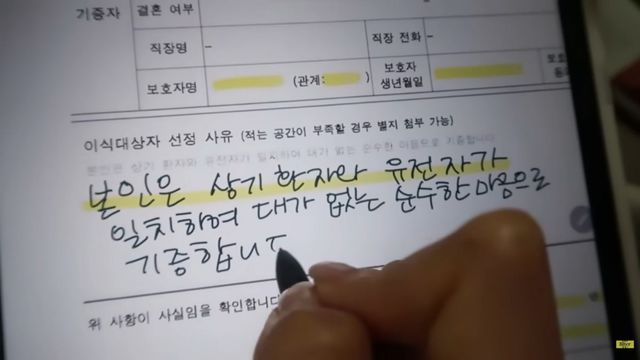 기증자
결혼 여부
직장명 – 직장 전화 –
보호자명 (관계: ) 보호자 생년월일
이식대상자 선정 사유 (적는 공간이 부족할 경우 별지 첨부 가능)
본인은 상기 환자와 유전자가 일치하며 대가 없는 순수한 마음으로 기증합니다
본인은 상기환자와 유전자가
일치하며 대가 없는 순수한 마음으로
기증합니ㄷ
위 사항이 사실임을 확인합니다